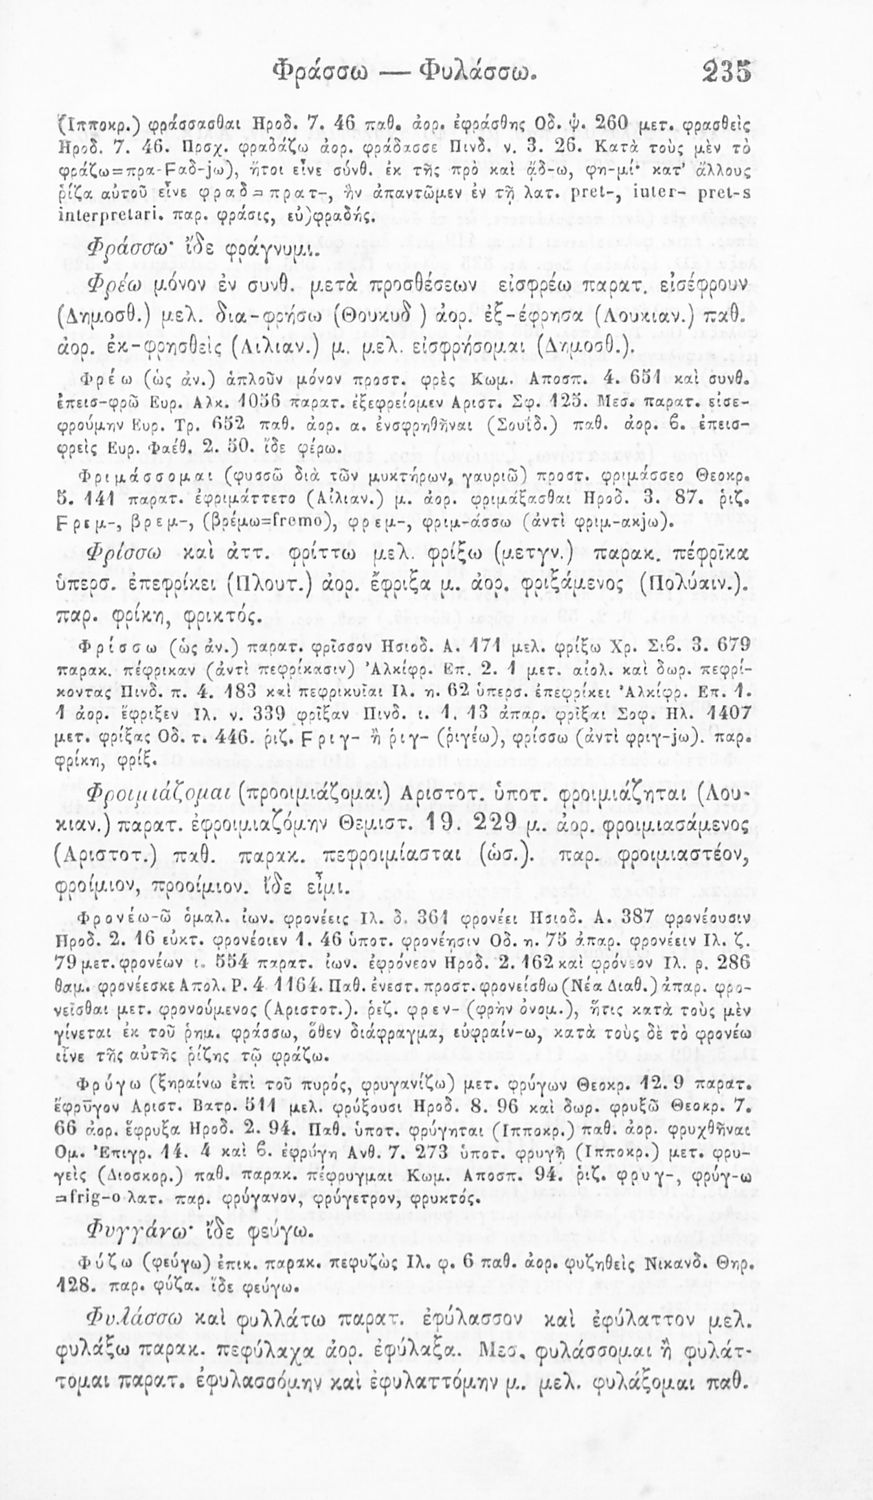 Φράσσω — Φυλάσσω. 235
(Ιπποκρ.) φράσσασθαι Ηροδ. 7. 46 παθ. ἀορ. ἐφράσθης Οδ. ψ. 260 μετ. φρασθεὶς
Ηροδ. 7. 46. Προσχ. φραδάζω ἀορ. φράδασσε Πινδ. ν. 3. 26. Κατὰ τοὺς μὲν τὸ
φράζω=πρα-Fαδ-jω), ἤτοι εἶνε σύνθ. ἐκ τῆς πρὸ καὶ ἄδ-ω, φη-μί· κατ' ἄλλους
ῥίζα αὐτοῦ εἶνε φραδ=πρατ-, ἣν ἀπαντῶμεν ἐν τῇ λατ. pret-, inter- pret-s
interpretari. παρ. φράσις, εὐ)φραδής.
Φράσσω· ἴδε φράγνυμι.
Φρέω μόνον ἐν συνθ. μετὰ προσθέσεων εἰσφρέω παρατ. εἰσέφρουν
(Δημοσθ.) μελ. δια-φρήσω (Θουκυδ ) ἀορ. ἐξ-έφρησα (Λουκιαν.) παθ.
ἀορ. ἐκ-φρησθεὶς (Αιλιαν.) μ. μελ. εἰσφρήσομαι (Δημοσθ.).
Φρέω (ὡς ἀν.) ἁπλοῦν μόνον προστ. φρὲς Κωμ. Αποσπ. 4. 651 καὶ συνθ.
ἐπεισ-φρῶ Ευρ. Αλκ. 1056 παρατ. ἐξεφρείομεν Αριστ. Σφ. 125. Μεσ. παρατ. εἰσε-
φρούμην Ευρ. Τρ. 652 παθ. ἀορ. α. ἐνσφρηθῆναι (Σουίδ.) παθ. ἀορ. β. ἐπεισ-
φρεὶς Ευρ. Φαέθ. 2. 50. ἴδε φέρω.
Φριμάσσομαι (φυσσῶ διὰ τῶν μυκτήρων, γαυριῶ) προστ. φριμάσσεο Θεοκρ.
5. 141 παρατ. ἐφριμάττετο (Αἰλιαν.) μ. ἀορ. φριμάξασθαι Ηροδ. 3. 87. ῥιζ.
Fρεμ-, βρεμ-, (βρέμω=fremo), φρεμ-, φριμ-άσσω (ἀντὶ φριμ-ακjω).
Φρίσσω καὶ ἀττ. φρίττω μελ. φρίξω (μετγν.) παρακ. πέφρῖκα
ὑπερσ. ἐπεφρίκει (Πλουτ.) ἀορ. ἔφριξα μ. ἀορ. φριξάμενος (Πολύαιν.).
παρ. φρίκη, φρικτός.
Φρίσσω (ὡς ἀν.) παρατ. φρῖσσον Ησιοδ. Α. 171 μελ. φρίξω Χρ. Σιβ. 3. 679
παρακ. πέφρικαν (ἀντὶ πεφρίκασιν) Ἀλκίφρ. Επ. 2. 1 μετ. αἰολ. καὶ δωρ. πεφρί-
κοντας Πινδ. π. 4. 183 καὶ πεφρικυῖαι Ιλ. η. 62 ὑπερσ. ἐπεφρίκει Ἀλκίφρ. Επ. 1.
1 ἀορ. ἔφριξεν Ιλ. ν. 339 φρῖξαν Πινδ. ι. 1. 13 ἀπαρ. φρῖξαι Σοφ. Ηλ. 1407
μετ. φρίξας Οδ. τ. 446. ῥιζ. Fριγ- ἢ ῥιγ- (ῥιγέω), φρίσσω (ἀντὶ φριγ-jω). παρ.
φρίκη, φρίξ.
Φροιμιάζομαι (προοιμιάζομαι) Αριστοτ. ὑποτ. φροιμιάζηται (Λου-
κιαν.) παρατ. ἐφροιμιαζόμην Θεμιστ. 19. 229 μ. ἀορ. φροιμιασάμενος
(Αριστοτ.) παθ. παρακ. πεφροιμίασται (ὡσ.). παρ. φροιμιαστέον,
φροίμιον, προοίμιον. ἴδε εἶμι.
Φρονέω-ῶ ὁμαλ. ἰων. φρονέεις Ιλ. δ. 361 φρονέει Ησιοδ. Α. 387 φρονέουσιν
Ηροδ. 2. 16 εὐκτ. φρονέοιεν 1. 46 ὑποτ. φρονέῃσιν Οδ. η. 75 ἀπαρ. φρονέειν Ιλ. ζ.
79 μετ. φρονέων ι. 554 παρατ. ἰων. ἐφρόνεον Ηροδ. 2. 162 καὶ φρόνεον Ιλ. ρ. 286
θαμ. φρονέεσκε Απολ. Ρ. 4 1164. Παθ. ἐνεστ. προστ. φρονείσθω (Νέα Διαθ.) ἀπαρ. φρο-
νεῖσθαι μετ. φρονούμενος (Αριστοτ.). ῥιζ. φρεν- (φρὴν ὀνομ.), ἥτις κατὰ τοὺς μὲν
γίνεται ἐκ τοῦ ῥημ. φράσσω, ὅθεν διάφραγμα, εὐφραίν-ω, κατὰ τοὺς δὲ τὸ φρονέω
εἶνε τῆς αὐτῆς ῥίζης τῷ φράζω.
Φρύγω (ξηραίνω ἐπὶ τοῦ πυρός, φρυγανίζω) μετ. φρύγων Θεοκρ. 12. 9 παρατ.
ἔφρῦγον Αριστ. Βατρ. 511 μελ. φρύξουσι Ηροδ. 8. 96 καὶ δωρ. φρυξῶ Θεοκρ. 7.
66 ἀορ. ἔφρυξα Ηροδ. 2. 94. Παθ. ὑποτ. φρύγηται (Ιπποκρ.) παθ. ἀορ. φρυχθῆναι
Ομ. Ἐπιγρ. 14. 4 καὶ β. ἐφρύγη Ανθ. 7. 273 ὑποτ. φρυγῇ (Ιπποκρ.) μετ. φρυ-
γεὶς (Διοσκορ.) παθ. παρακ. πέφρυγμαι Κωμ. Αποσπ. 94. ῥιζ. φρυγ-, φρύγ-ω
=frig-o λατ. παρ. φρύγανον, φρύγετρον, φρυκτός.
Φυγγάνω· ἴδε φεύγω.
Φύζω (φεύγω) ἐπικ. παρακ. πεφυζὼς Ιλ. φ. 6 παθ. ἀορ. φυζηθεὶς Νικανδ. Θηρ.
128. παρ. φύζα. ἴδε φεύγω.
Φυλάσσω καὶ φυλλάτω παρατ. ἐφύλασσον καὶ ἐφύλαττον μελ.
φυλάξω παρακ. πεφύλαχα ἀορ. ἐφύλαξα. Μεσ. φυλάσσομαι ἢ φυλάτ-
τομαι παρατ. ἐφυλασσόμην καὶ ἐφυλαττόμην μ. μελ. φυλάξομαι παθ.